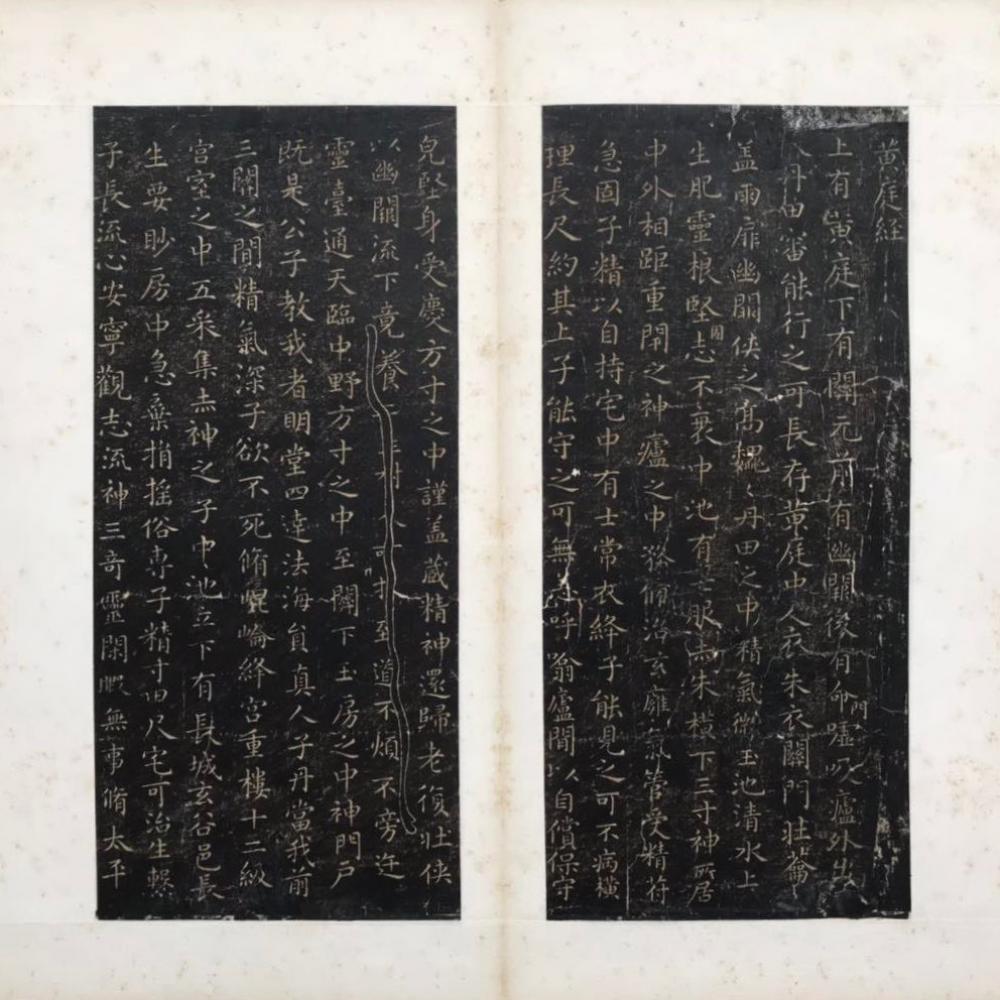 黄庭經
上有黄庭下有關元前有幽闕後有命門噓吸廬外出
入丹田審能行之可長存黄庭中人衣朱衣關門壯籥
蓋兩扉幽闕俠之高巍巍丹田之中精氣微玉池清水上
生肥靈根堅固志不衰中池有士服赤朱橫下三寸神所居
中外相距重閉之神廬之中務脩治玄廱氣管受精符
急固子精以自持宅中有士常衣絳子能見之可不病橫
理長尺約其上子能守之可無恙呼噏廬間以自償保守
皃堅身受慶方寸之中謹蓋藏精神還歸老復壯俠
以幽闕流下竟養至道不煩不旁迕
靈臺通天臨中野方寸之中至關下玉房之中神門戶
既是公子教我者明堂四達法海員真人子丹當我前
三關之間精氣深子欲不死脩崐崘絳宮重樓十二級
宮室之中五采集赤神之子中池立下有長城玄谷邑長
生要眇房中急棄捐搖俗專子精寸田尺宅可治生繫
子長流心安寧觀志流神三奇靈閑暇無事脩太平